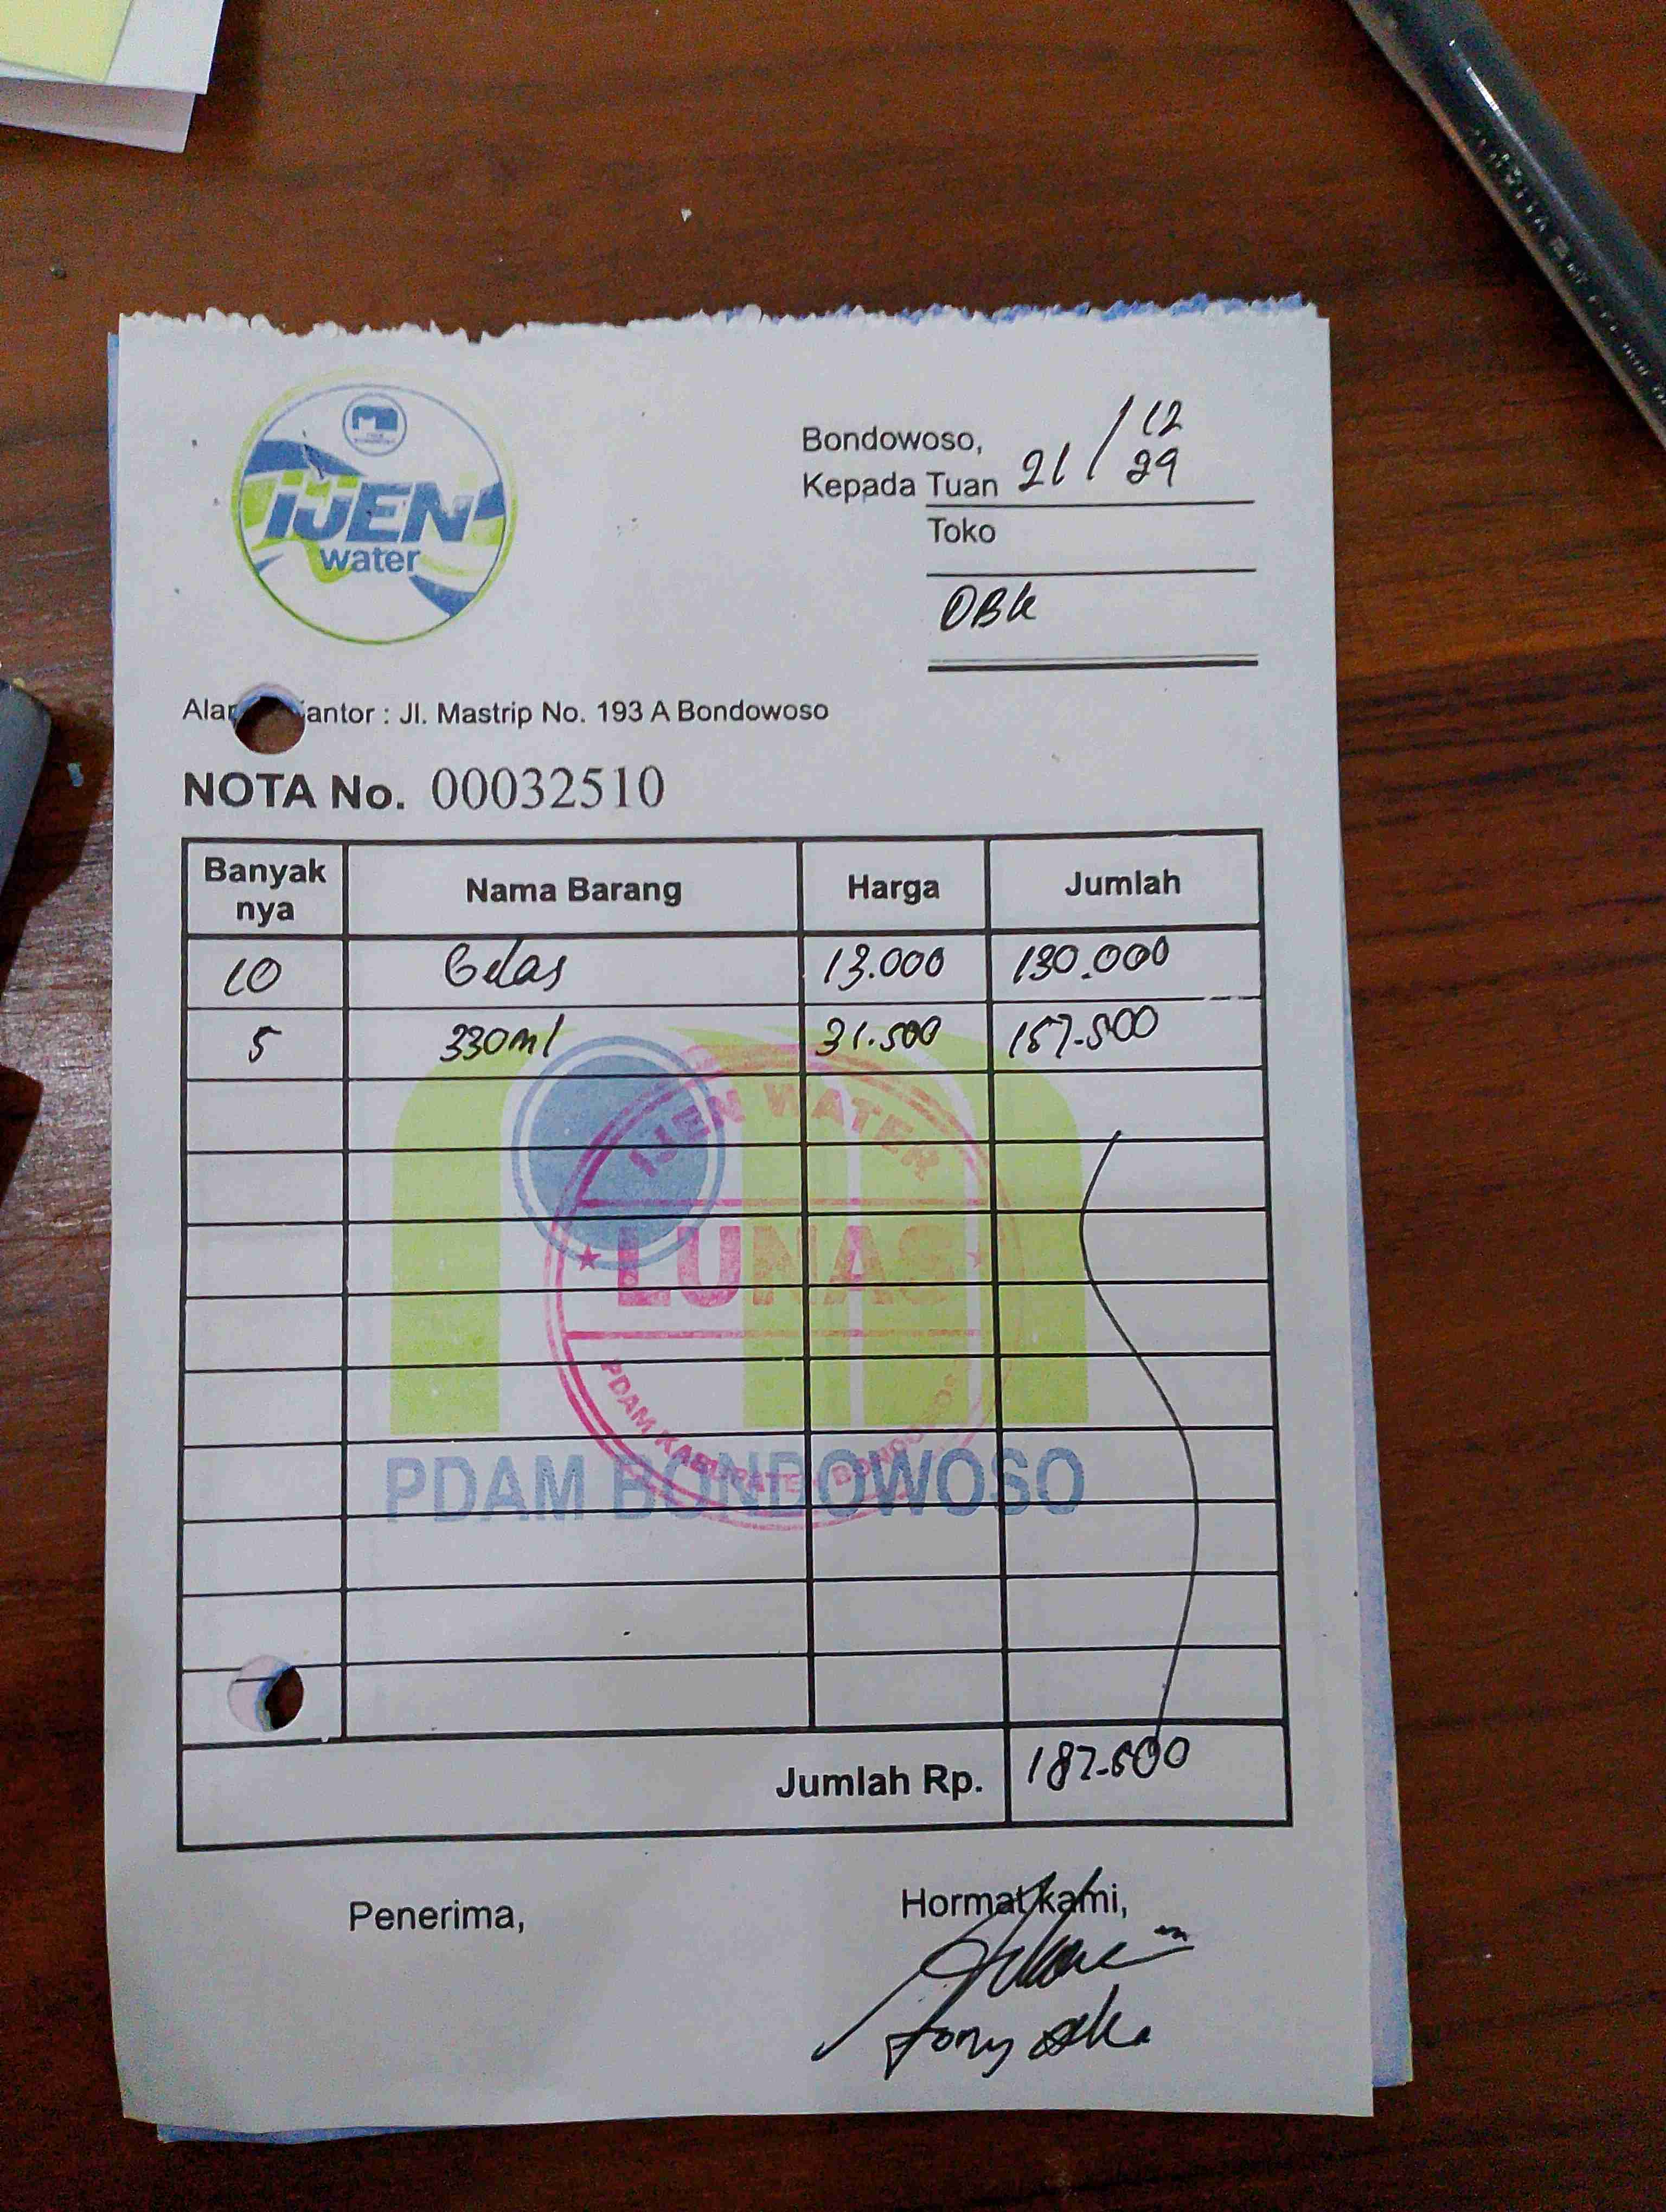 IJEN
water
Bondowoso, 21/12
Kepada Tuan 29
Toko
OBK
Kantor : Jl. Mastrip No. 193 A Bondowoso
NOTA No. 00032510
Banyak nya Nama Barang Harga Jumlah
10 Gelas 13.000 130.000
5 330ml 31.500 157-500
IJEN WATER
LUNAS
PDAM KABUPATEN BONDOWOSO
PDAM BONDOWOSO
Jumlah Rp. 187-500
Penerima, Hormat kami,